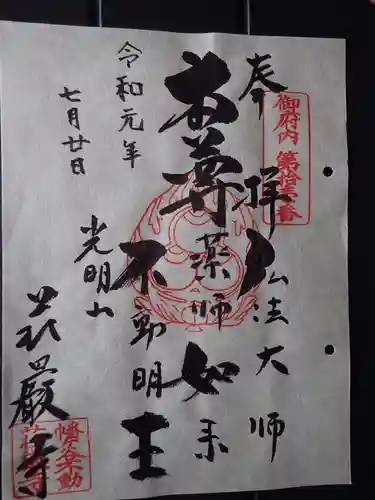 奉拝
弘法大師
御府内 第拾壱番
本尊
薬師如来
不動明王
令和元年
七月廿日
光明山
荘厳寺